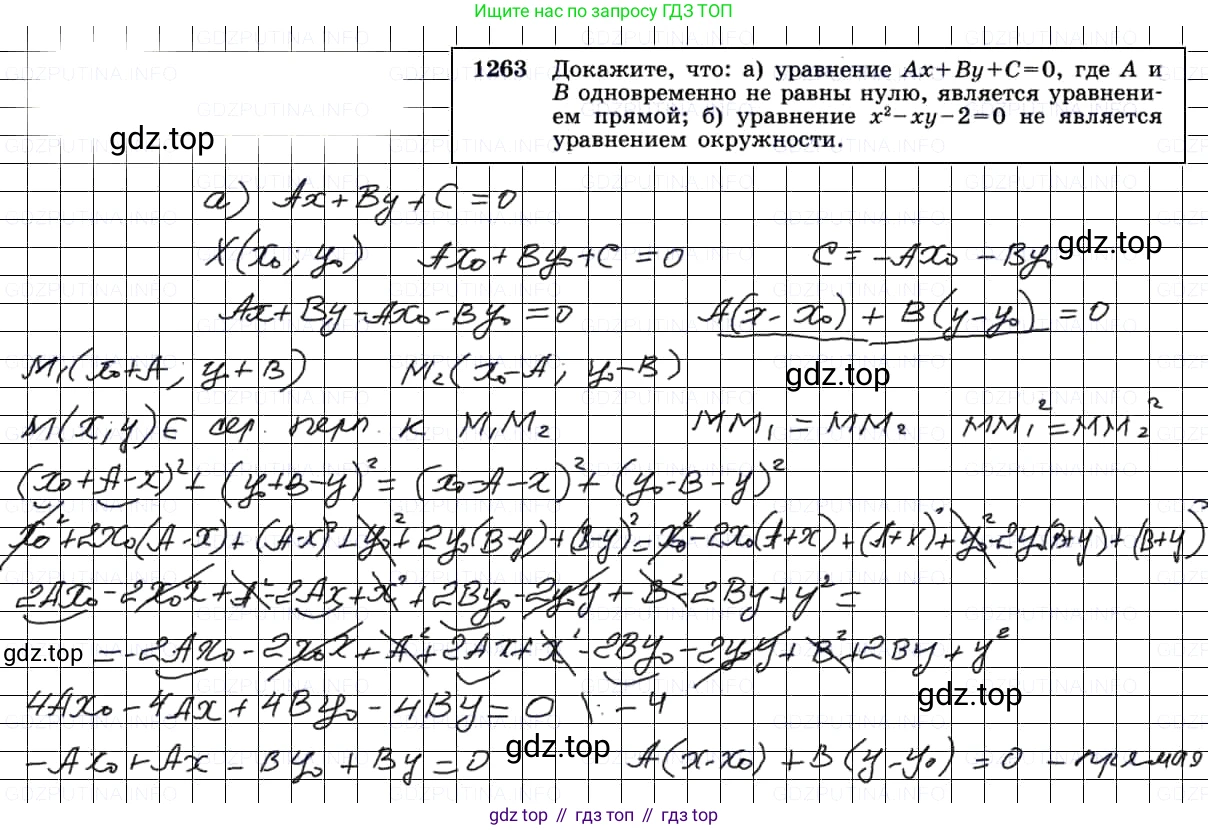 Ищите нас по запросу ГДЗ ТОП
1263 Докажите, что: а) уравнение Ax+By+C=0, где A и
B одновременно не равны нулю, является уравнени-
ем прямой; б) уравнение x²-xy-2=0 не является
уравнением окружности.
gdz.top
а) Ax+By+C=0
X(x₀; y₀) Ax₀+By₀+C=0 C=-Ax₀-By₀ gdz.top
Ax+By-Ax₀-By₀=0 A(x-x₀)+B(y-y₀)=0
M₁(x₀+A; y+B) M₂(x₀-A; y₀-B) gdz.top
M(x;y)∈ сер. перп. к M₁M₂ MM₁=MM₂ MM₁²=MM₂²
(x₀+A-x)²+(y₀+B-y)²=(x₀-A-x)²+(y₀-B-y)²
x₀²+2x₀(A-x)+(A-x)²+y₀²+2y₀(B-y)+(B-y)²=x₀²-2x₀(A+x)+(A+x)²+y₀²-2y₀(B+y)+(B+y)²
2Ax₀-2x₀x+A²-2Ax+x²+2By₀-2y₀y+B²-2By+y²=
gdz.top =-2Ax₀-2x₀x+A²+2Ax+x²-2By₀-2y₀y+B²+2By+y²
4Ax₀-4Ax+4By₀-4By=0 \:-4 gdz.top
-Ax₀+Ax-By₀+By=0 gdz.top A(x-x₀)+B(y-y₀)=0 - прямая
gdz top // гдз топ // gdz top // гдз топ
GDZPUTINA.INFO